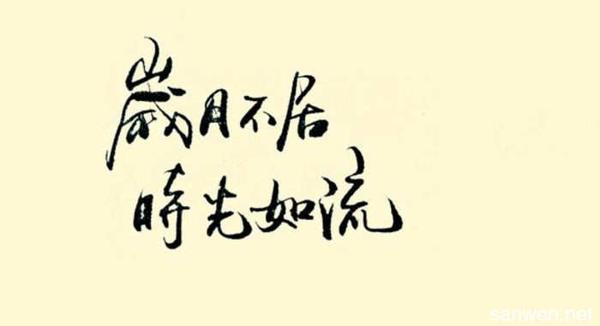 歲月不居
時光如流
sanwen.net